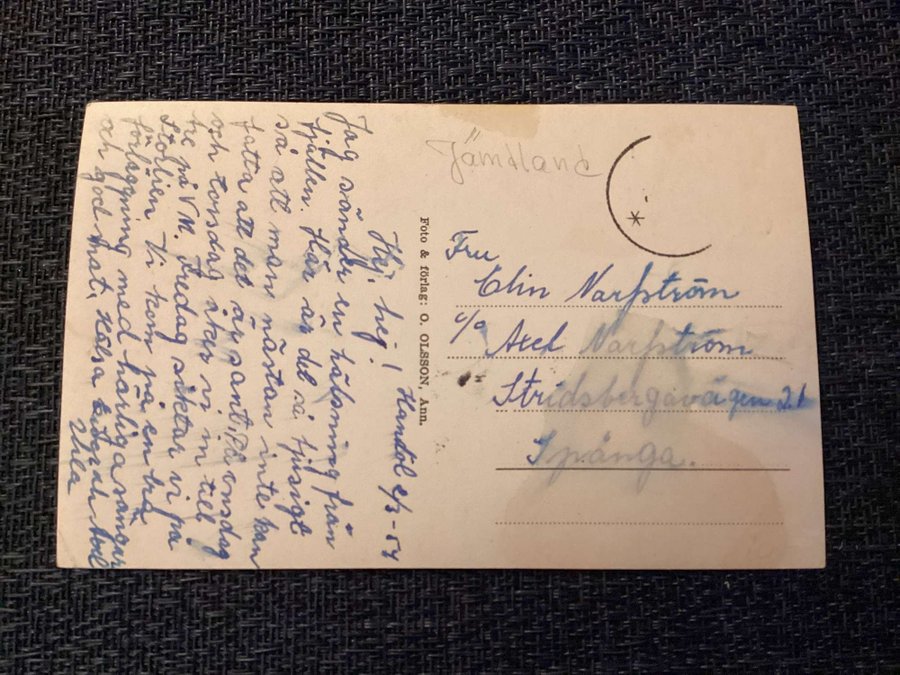 Hej, hej! Handöl 2/3-54
Jag sänder en hälsning från
fjällen. Här är det så tjusigt
så att man nästan inte kan
fatta att det är sant. På onsdag
och torsdag åker vi in till
på VM. Fredag siktar vi på
Storlien. Vi kom på en bra
förläggning med härliga sängar
och god mat. Hälsa
Ulla
Jämtland
Foto & förlag: O. OLSSON, Ann.
Fru
Elin Narfström
c/o Axel Narfström
Stridsbergavägen 21
Spånga.